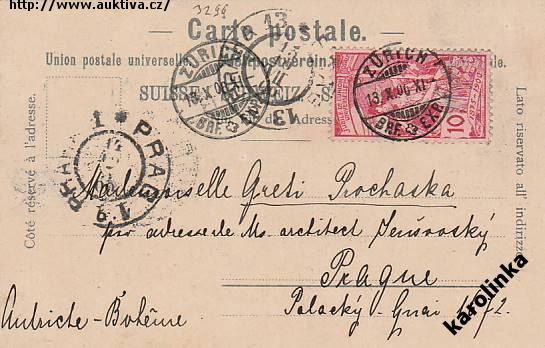 http://www.auktiva.cz/
3299
Carte postale.
Union postale universelle. Weltpostverein.
SUISSE. SCHWEIZ.
Côté réservé à l'adresse.
Lato riservato all' indirizzo
ZÜRICH
13.X.00.XI
BRF. EXP.
ZÜRICH
13.X.00.XI-
BRF. EXP.
10
13
13
PRAG
1
Mademoiselle Greti Prochaska
par adresse de Ms. architect
Prague
Palacký-Quai 72.
Autriche-Bohême
karolinka